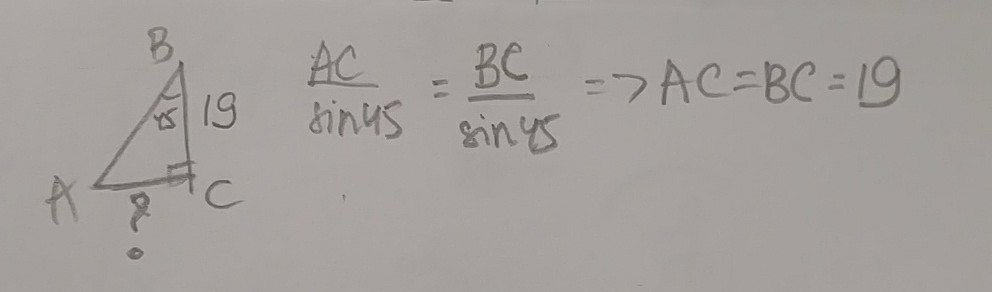 B
45
19
A
C
?
AC/sin45 = BC/sin45 => AC=BC=19